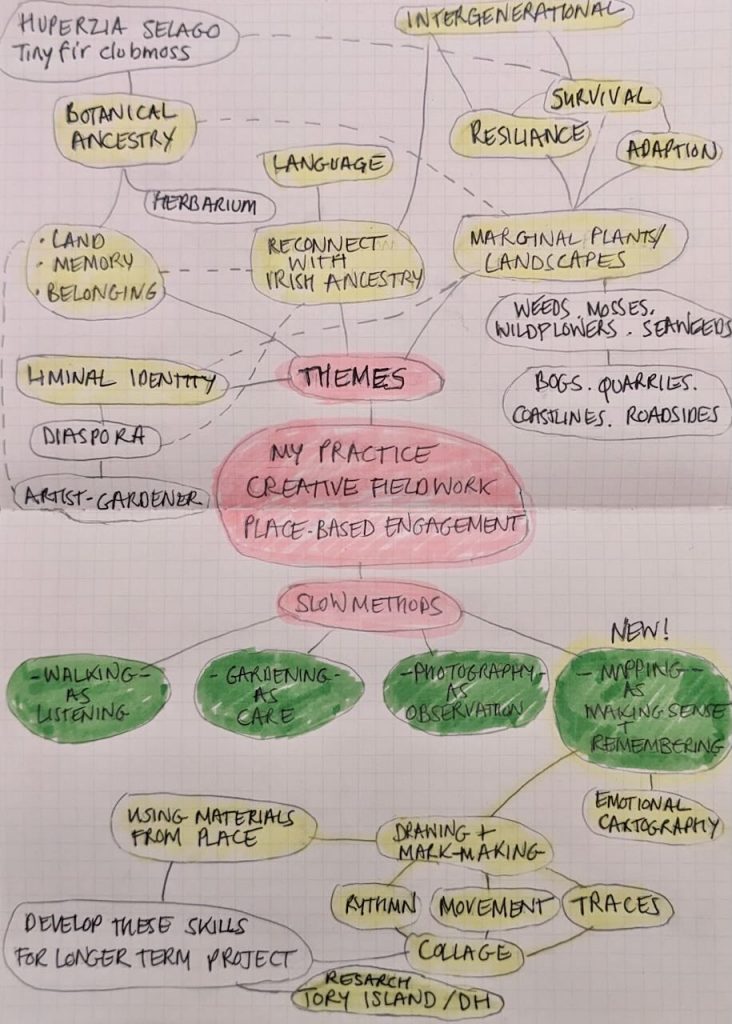 HUPERZIA SELAGO
Tiny fir clubmoss
INTERGENERATIONAL
BOTANICAL
ANCESTRY
SURVIVAL
RESILIANCE
ADAPTION
LANGUAGE
HERBARIUM
• LAND
• MEMORY
• BELONGING
RECONNECT
WITH
IRISH ANCESTRY
MARGINAL PLANTS/
LANDSCAPES
WEEDS. MOSSES.
WILDFLOWERS. SEAWEEDS
LIMINAL IDENTITY
THEMES
BOGS. QUARRIES.
COASTLINES. ROADSIDES
DIASPORA
ARTIST-GARDENER
MY PRACTICE
CREATIVE FIELDWORK
PLACE-BASED ENGAGEMENT
SLOW METHODS
NEW!
- WALKING -
AS
LISTENING
- GARDENING -
AS
CARE
- PHOTOGRAPHY -
AS
OBSERVATION
- MAPPING -
AS
MAKING SENSE
+
REMEMBERING
EMOTIONAL
CARTOGRAPHY
USING MATERIALS
FROM PLACE
DRAWING +
MARK-MAKING
RYTHMN
MOVEMENT
TRACES
DEVELOP THESE SKILLS
FOR LONGER TERM PROJECT
COLLAGE
RESARCH
TORY ISLAND/DH